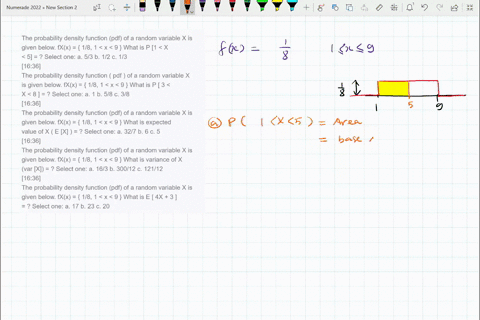 Numerade 2022 » New Section 2
The probability density function (pdf) of a random variable X is
given below. fX(x) = { 1/8, 1 < x < 9 } What is P [1 < X
< 5] = ? Select one: a. 5/3 b. 1/2 c. 1/3
[16:36]
The probability density function ( pdf ) of a random variable X
is given below. fX(x) = { 1/8, 1 < x < 9 } What is P [ 3 <
X < 8 ] = ? Select one: a. 1 b. 5/8 c. 3/8
[16:36]
The probability density function (pdf) of a random variable X is
given below. fX(x) = { 1/8, 1 < x < 9 } What is expected
value of X ( E [X] ) = ? Select one: a. 32/7 b. 6 c. 5
[16:36]
The probability density function (pdf) of a random variable X is
given below. fX(x) = { 1/8, 1 < x < 9 } What is variance of X
(var [X]) = ? Select one: a. 16/3 b. 300/12 c. 121/12
[16:36]
The probability density function (pdf) of a random variable X is
given below. fX(x) = { 1/8, 1 < x < 9 } What is E [ 4X + 3 ]
= ? Select one: a. 17 b. 23 c. 20
f(x) = 1/8 1 ≤ x ≤ 9
1/8
1 5 9
(a) P ( 1 < X < 5 ) = Area
= base